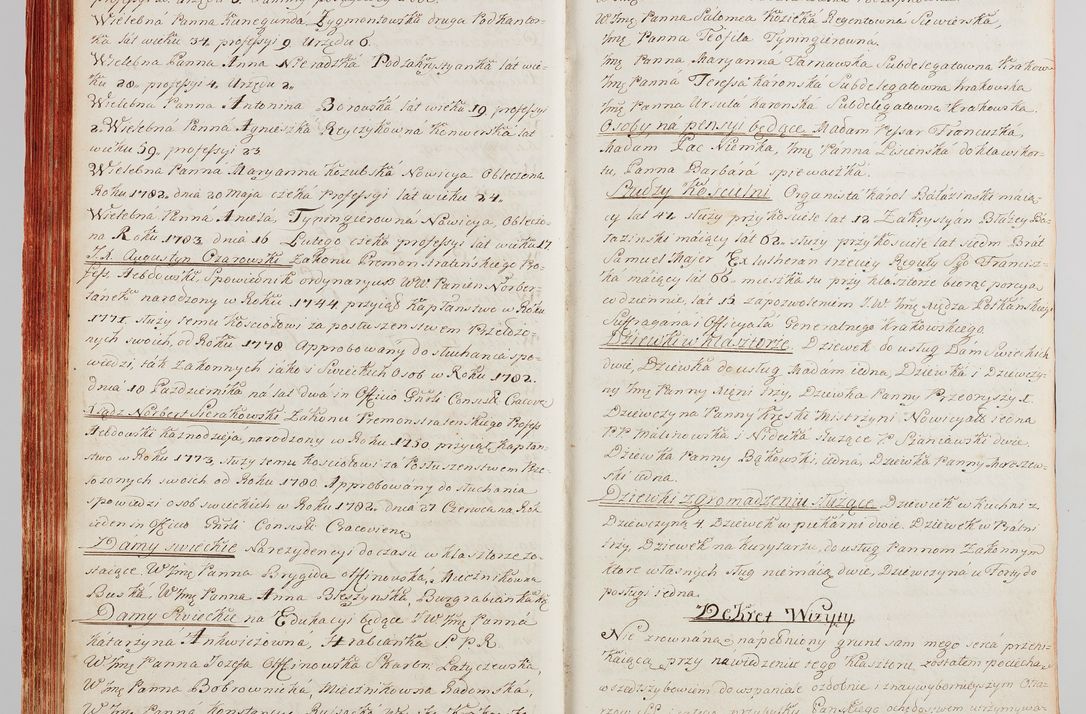 Wielebna Panna Kunegunda Zygmontowska druga Podkantor-
ka lat wieku 34 professyi 9 Urzędu 6.
Wielebna Panna Anna Nieradzka Podzakryszyanka lat wie-
ku 20. professyi 4. Urzędu 2.
Wielebna Panna Antonina Borowska lat wieku 19 professyi
2. Wielebna Panna Agnieszka Reyczykowna Konwerska lat
wieku 59. professyi 23
Wielebna Panna Maryanna Kozubska Nowicya Obleczona
Roku 1782. dnia 20 maja czeka Professyi lat wieku 24.
Wielebna Panna Aniela Tyningierowna Nowicya, Obleczo-
na Roku 1783 dnia 16 Lutego czeka professyi lat wieku 17
J.X. Augustyn Ozarowski Zakonu Premonstrateńskiego Pro-
fess Hebdowski, Spowiednik ordynaryus WW Panien Norber-
tanek narodzony w Roku 1744 przyiął kapłanstwo w Roku
1771 służy temu kosciołowi za posłuszenstwem Przełozo-
nych swoich, od Roku 1778 Approbowany do słuchania spo-
wiedzi, tak Zakonnych iako i Swieckich Osob w Roku 1782.
dnia 18 Pazdziernika na lat dwa in Officio Gñrli Consist. Cracov.
Xiądz Norbert Sierakowski Zakonu Premonstratenskiego Profess
Hebdowski kaznodzieja, narodzony w Roku 1750 przyiął kapłan-
stwo w Roku 1773, służy temu kosciołowi za Posłuszenstwem Prze-
łozonych swoich od Roku 1780 Approbowany do słuchania
spowiedzi osob swieckich w Roku 1782. dnia 27 Czerwca na Rok
ieden in Officio Gñrli Consist. Cracoviens.
Damy swieckie Na rezydencyi do czasu w klasztorze zo-
staiące. W Jmę Panna Brygida Offinowska, Miecznikowna
Buska, W Jmę Panna Anna Bleszynska, Burgrabianka
Damy Swieckie na Edukacyi będące JW Jmę Panna
Katarzyna Ankwiczowna, Hrabianka S.P.R.
W Jmę Panna Jozefa Offinowska Skarbn. Latyczewska,
W Jmę Panna Bobrownicka, Miecznikowna Radomska,
W Jmę Panna Konstancya
W Jmę Panna Salomea Kozicka Regentowna Siewierska,
Jmę Panna Teofila Tyningierowna.
Jmę Panna Maryanna Tarnawska Subdelegatowna Krakow.
Jmę Panna Teressa karonska Subdelegatowna krakowska
Jmę Panna Ursula karonska Subdelegatowna krakowska.
Osoby na pensyi będące Madam Pessar Francuzka,
Madam Pac Niemka, Jmę Panna Lisienska do klawikor-
tu, Panna Barbara spiewaczka.
Słudzy Koscielni Organista karol Bałazinski maią-
cy lat 42 służy przy kosciele lat 12 Zakrystyan Błażey Ba-
łazinski maiący lat 62. służy przy kosciele lat siedm Brat
Samuel Majer Exlutheran trzeciey Reguły Sgo Francisz-
ka maiący lat 66. mieszka tu przy klasztorze biorąc porcyą
codziennie, lat 12 za pozwoleniem J.W Jmę Xiędza Potkańskiego
Suffragana i Officyała Generalnego Krakowskiego
Dziewki w klasztorze. Dziewek do usług Dam Swieckich
dwie, Dziewka do usług Madam iedna, Dziewka i Dziewczy-
ny Jmę Panny Xięni trzy, Dziewka Panny Przeoryszy 1.
Dziewczyna Panny Kręski Mistrzyni Nowicyatu iedna
PP Malinowska i Nidecka służące P. Staniawski dwie
Dziewka Panny Bąkowski iedna, Dziewka Panny Moroszew-
ski iedna.
Dziewki zgromadzeniu służące Dziewek w kuchni 2
Dziewczyny 4 Dziewek w piekarni dwie. Dziewek w Pralni
trzy, Dziewek na kurytarzu, do usług Pannom Zakonnym
ktore własnych sług niemaią dwie, Dziewczyna u Forty do
posługi iedna.
Dekret Wizyty
Nie zrownana, napełniony grunt sam mego serca przeni-
kaiącą przy nawiedzeniu tego klasztoru, zostałem pociechą,
wszedłszy bowiem do wspaniale ozdobnie i znaywybornieyszym